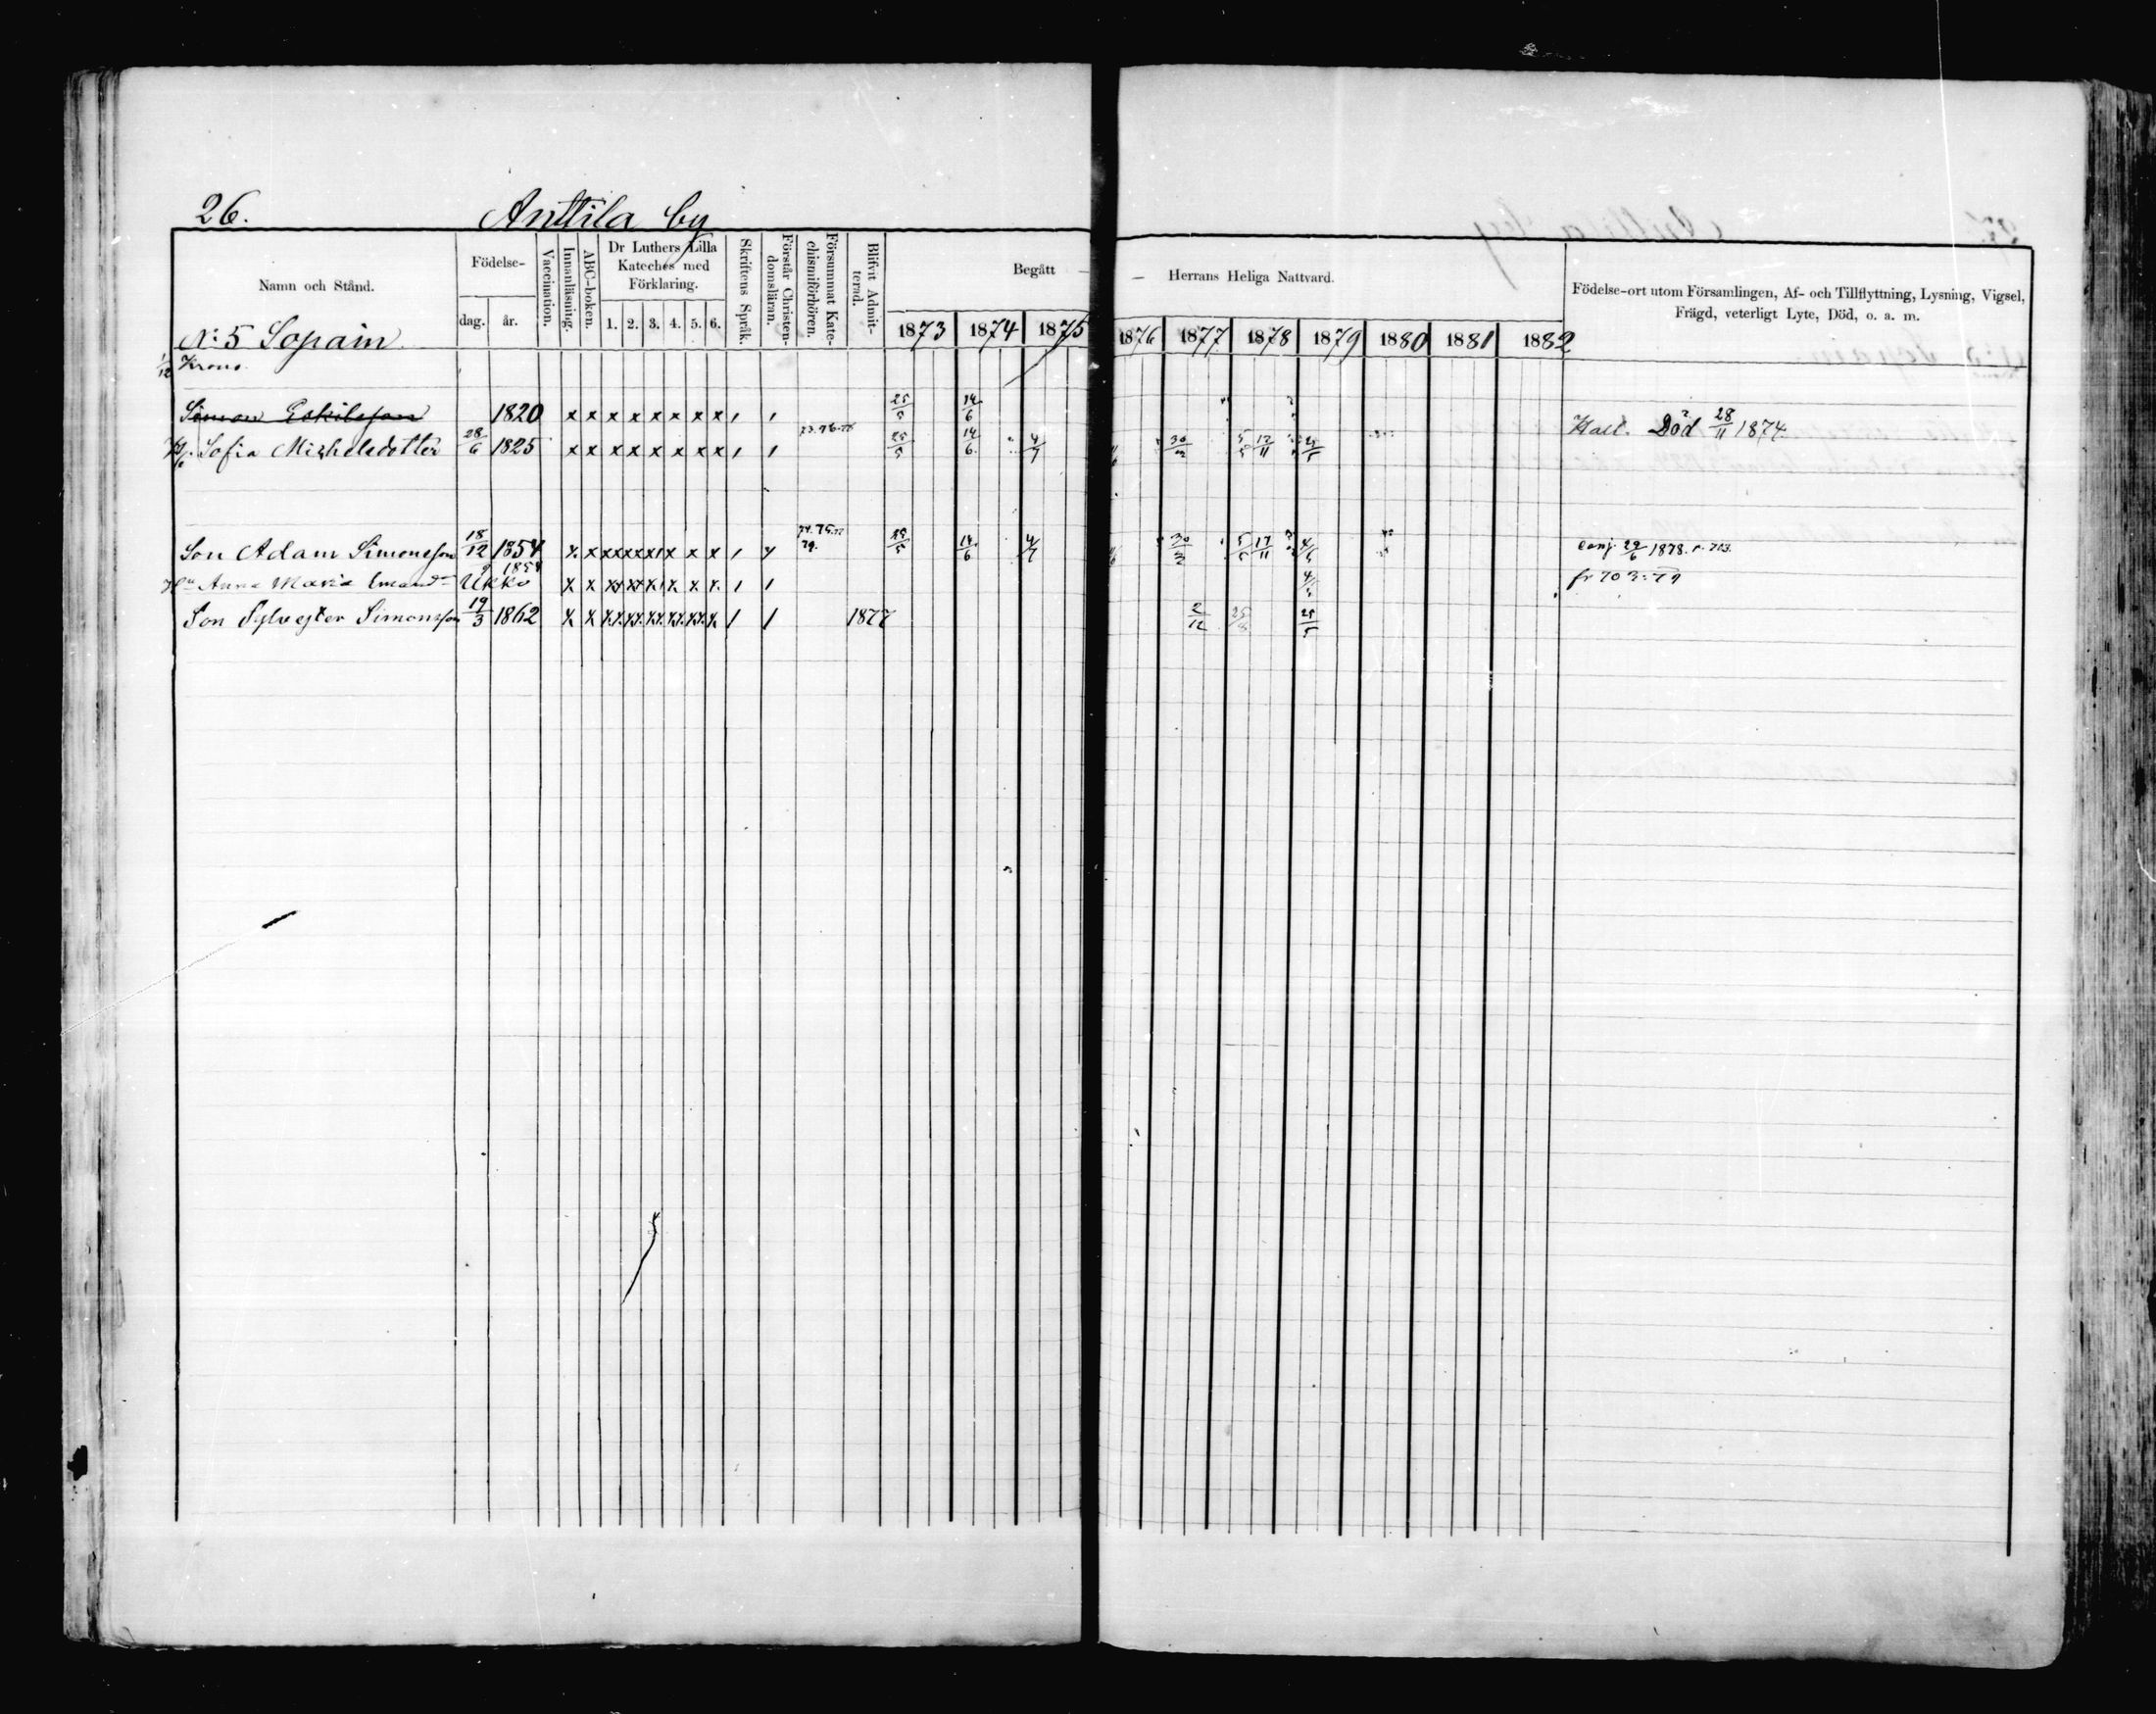 26. Anttila by
Namn och Stånd.
Födelse-
dag. år.
Vaccination.
Innanläsning.
ABC-boken.
Dr Luthers Lilla
Kateches med
Förklaring.
1. 2. 3. 4. 5. 6.
Skriftens Språk.
Förstår Christen-
domsläran.
Försummat Kate-
chismiförhören.
Blifvit Admit-
terad.
Begått — — Herrans Heliga Nattvard.
1873 1874 1875 1876 1877 1878 1879 1880 1881 1882
Födelse-ort utom Församlingen, Af- och Tillflyttning, Lysning, Vigsel,
Frägd, veterligt Lyte, Död, o. a. m.
N:5 Sopain
1/12 Krono
Simon Eskilsson 1820 x x x x x x x x 25/5 14/6 Halt. Död 28/11 1874.
Sofia Michelsdotter 28/6 1825 x x x x x x x x 25/5 14/6 4/7 30/3 17/11 25/5
Son Adam Simonsson 18/12 1854 79. 25/5 14/6 4/7 30/3 17/11 conj. 29/6 1878. 703.
Hu Anna Maria Emand Ukko 1858 fr 703:79
Son Sylvester Simonsson 19/3 1862 1877 2/12 25/5